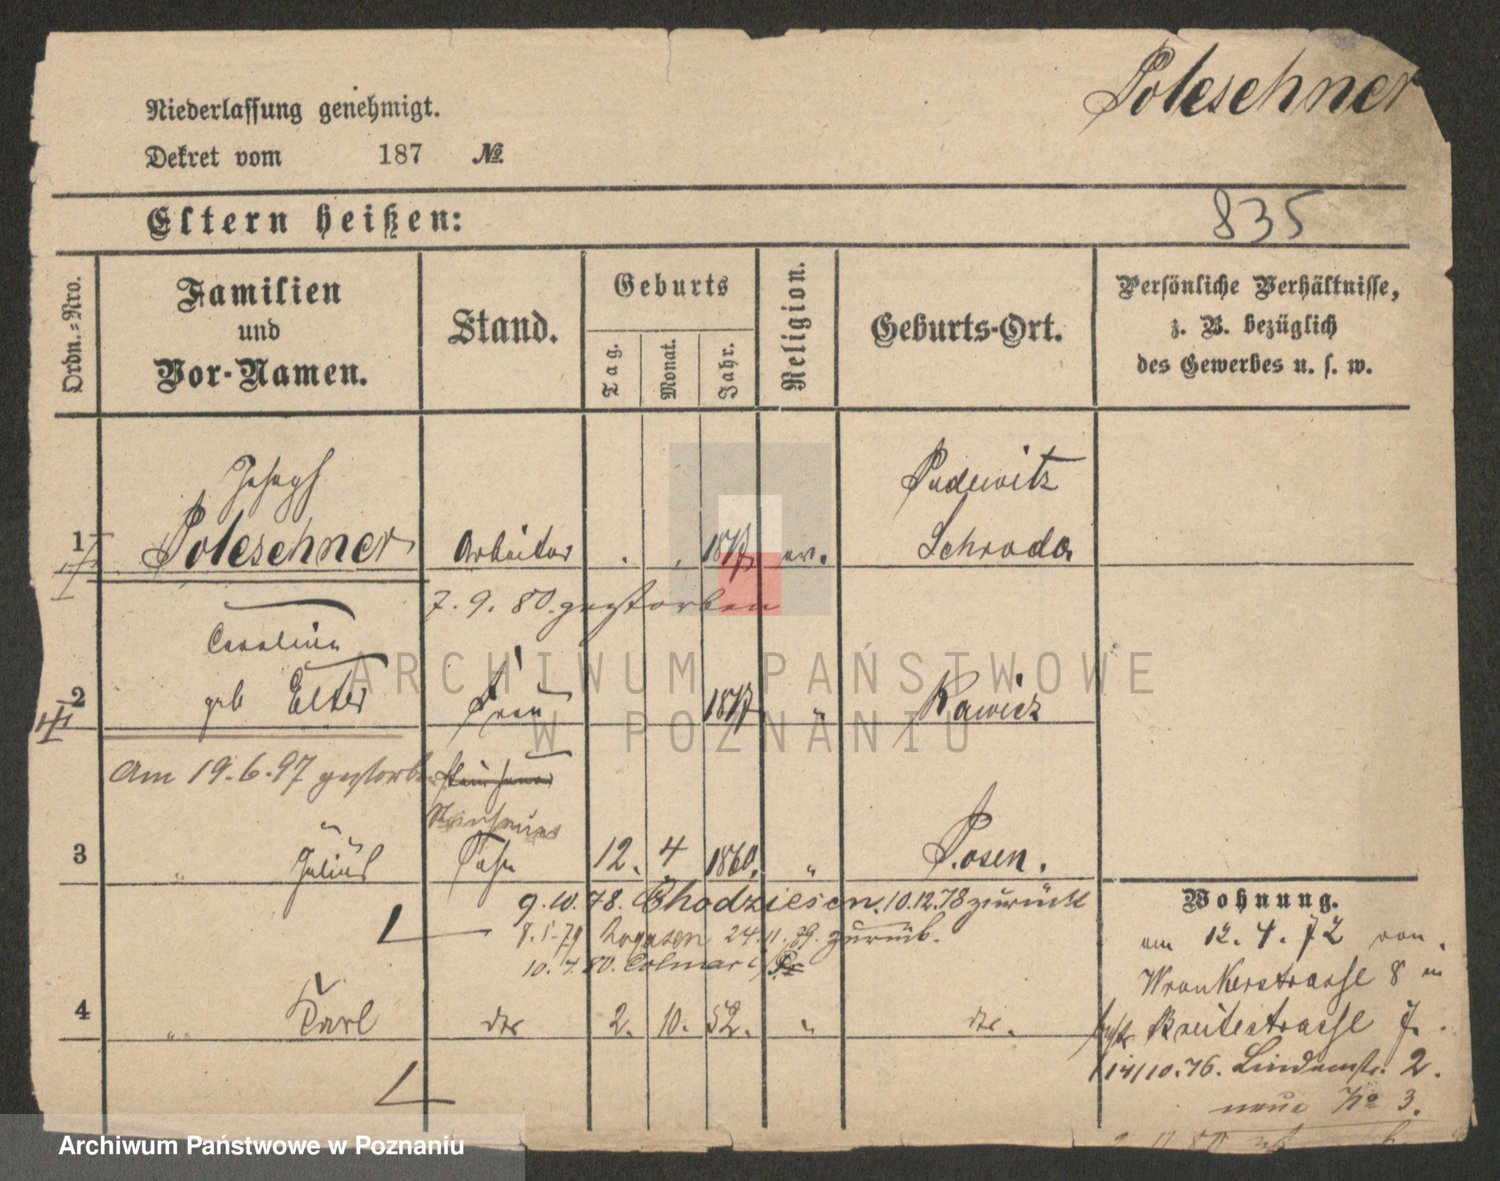 Poleschner
Niederlassung genehmigt.
Dekret vom 187 №
Eltern heißen:
835
Ordn.=Nro.
Familien
und
Vor-Namen.
Stand.
Geburts
Tag.
Monat.
Jahr.
Religion.
Geburts-Ort.
Persönliche Verhältnisse,
z. B. bezüglich
des Gewerbes u. s. w.
Joseph
Pudewitz
1 Poleschner Arbeiter 1817 ev. Schroda
7. 9. 80. gestorben
Caroline
2 geb Elter Frau 1817 " Rawicz
Am 19.6.97 gestorben
3 " Julius Sohn 12. 4 1860. " Posen.
9.10.78. Chodziesen. 10.12.78 zurück
8.1.79 Rogasen 24.11.79. zurück.
10.4.80. Colmar i/P
4 " Carl do 2. 10. 52. " do.
Wohnung.
am 12.4.72 von
Wronkerstrasse 8 in
Breitestrasse 7.
14/10.76. Lindenstr. 2.
neue No 3.
ARCHIWUM PAŃSTWOWE
W POZNANIU
Archiwum Państwowe w Poznaniu